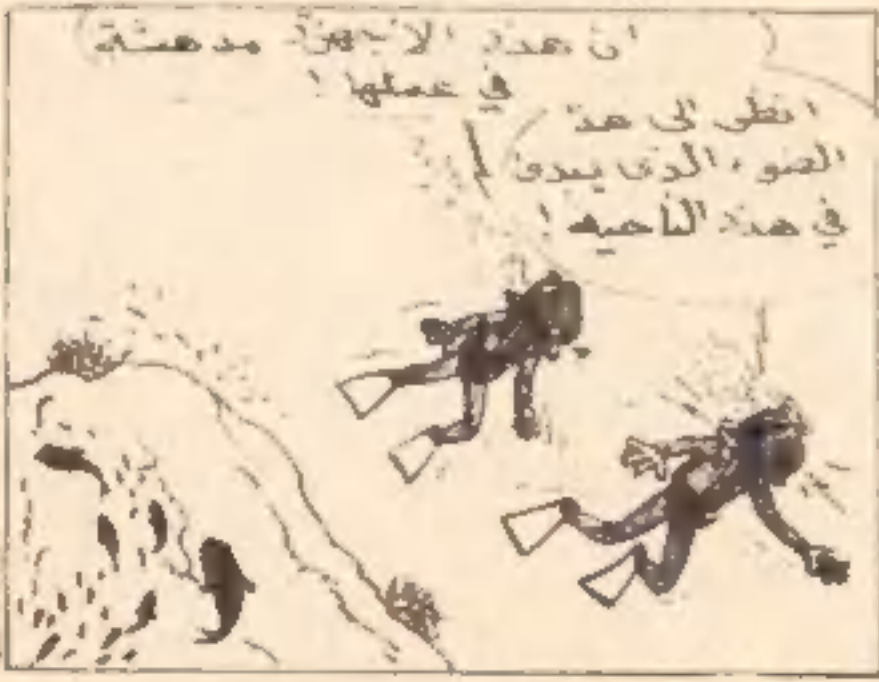 ان هذه الأجهزة مدهشة
في عملها !
انظر الى هذا
الضوء الذى يبدو
في هذه الناحية !